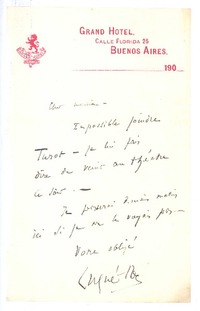 GRAND HOTEL.
CALLE FLORIDA 25
BUENOS AIRES.
190
Cher
Impossible joindre
Tarot - je lui fais
dire de venir au théâtre
ce soir -
Je passerai demain matin
ici si je ne le voyais pas -
Votre obligé
Lugné-Poe